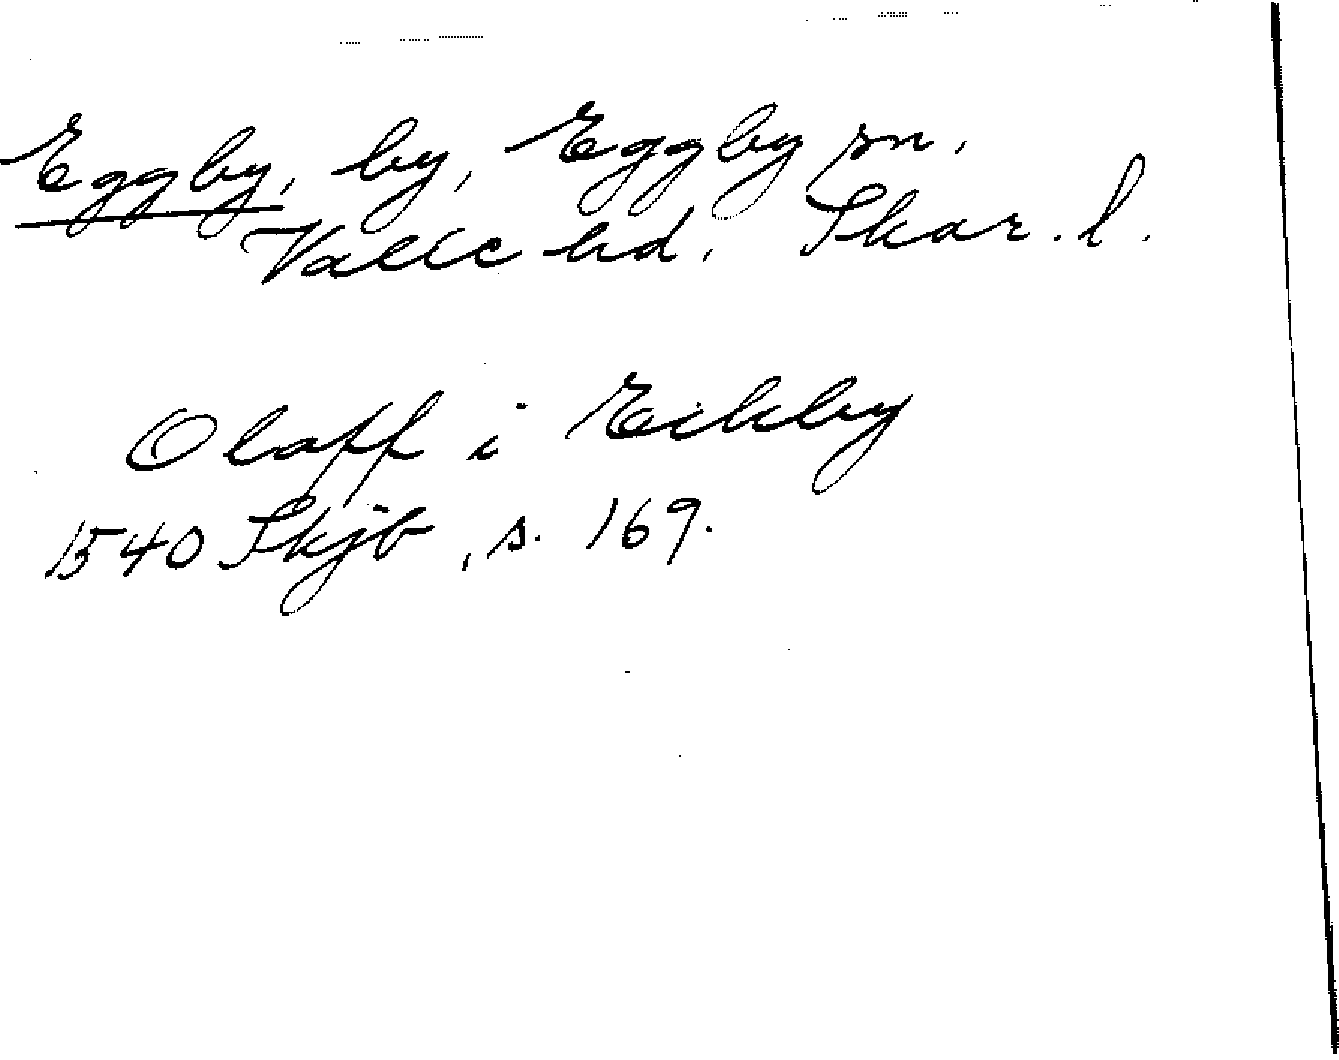 Eggby, by, Eggby sn.
Valle hd. Skar. l.
Olaff i Eikby
1540 Skjb, s. 169.